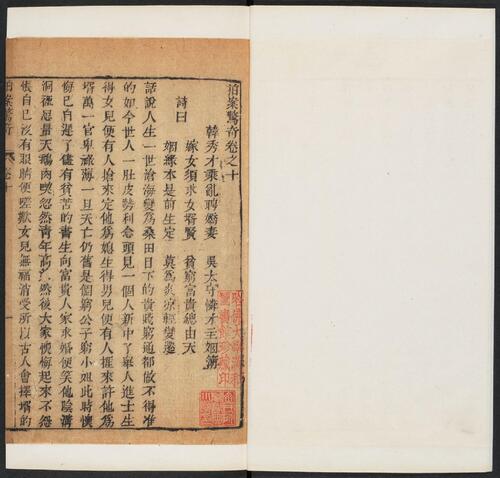 拍案驚奇卷之十
韓秀才乘亂聘嬌妻　吳太守憐才主姻簿
詩曰
嫁女須求女壻賢　貧窮富貴總由天
姻緣本是前生定　莫爲炎涼輕變遷
話說人生一世滄海變爲桑田目下的貴賤窮通都做不得准
的如今世人一肚皮勢利念頭見一個人新中了舉人進士生
得女兒便有人搶來定他爲媳生得男兒便有人捱來許他爲
壻萬一官卑祿薄一旦夭亡仍舊是個窮公子窮小姐此時懊
悔已自遲了儘有貧苦的書生向富貴人家求婚便笑他陰溝
洞裡思量天鵝肉喫忽然青年高
然後大家懊悔起來不怨
悵自己沒有眼睛便嗟歎女兒無福消受所以古人會擇壻的
拍案驚奇
卷十
一